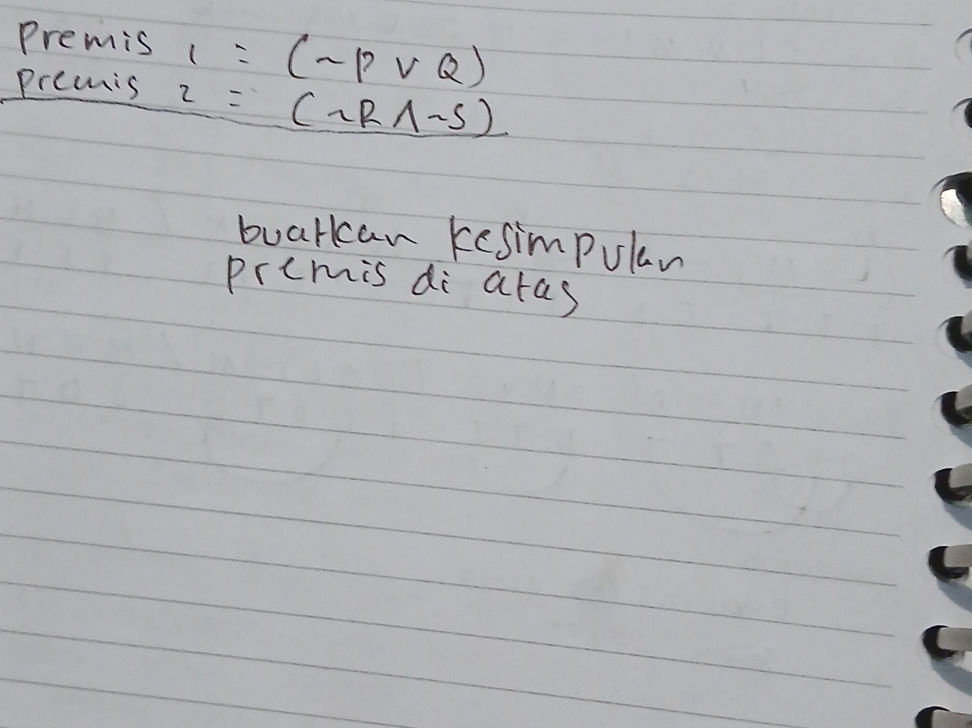 Premis 1 = (~P ∨ Q)
Premis 2 = (~R ∧ ~S)
buatkan kesimpulan
premis di atas